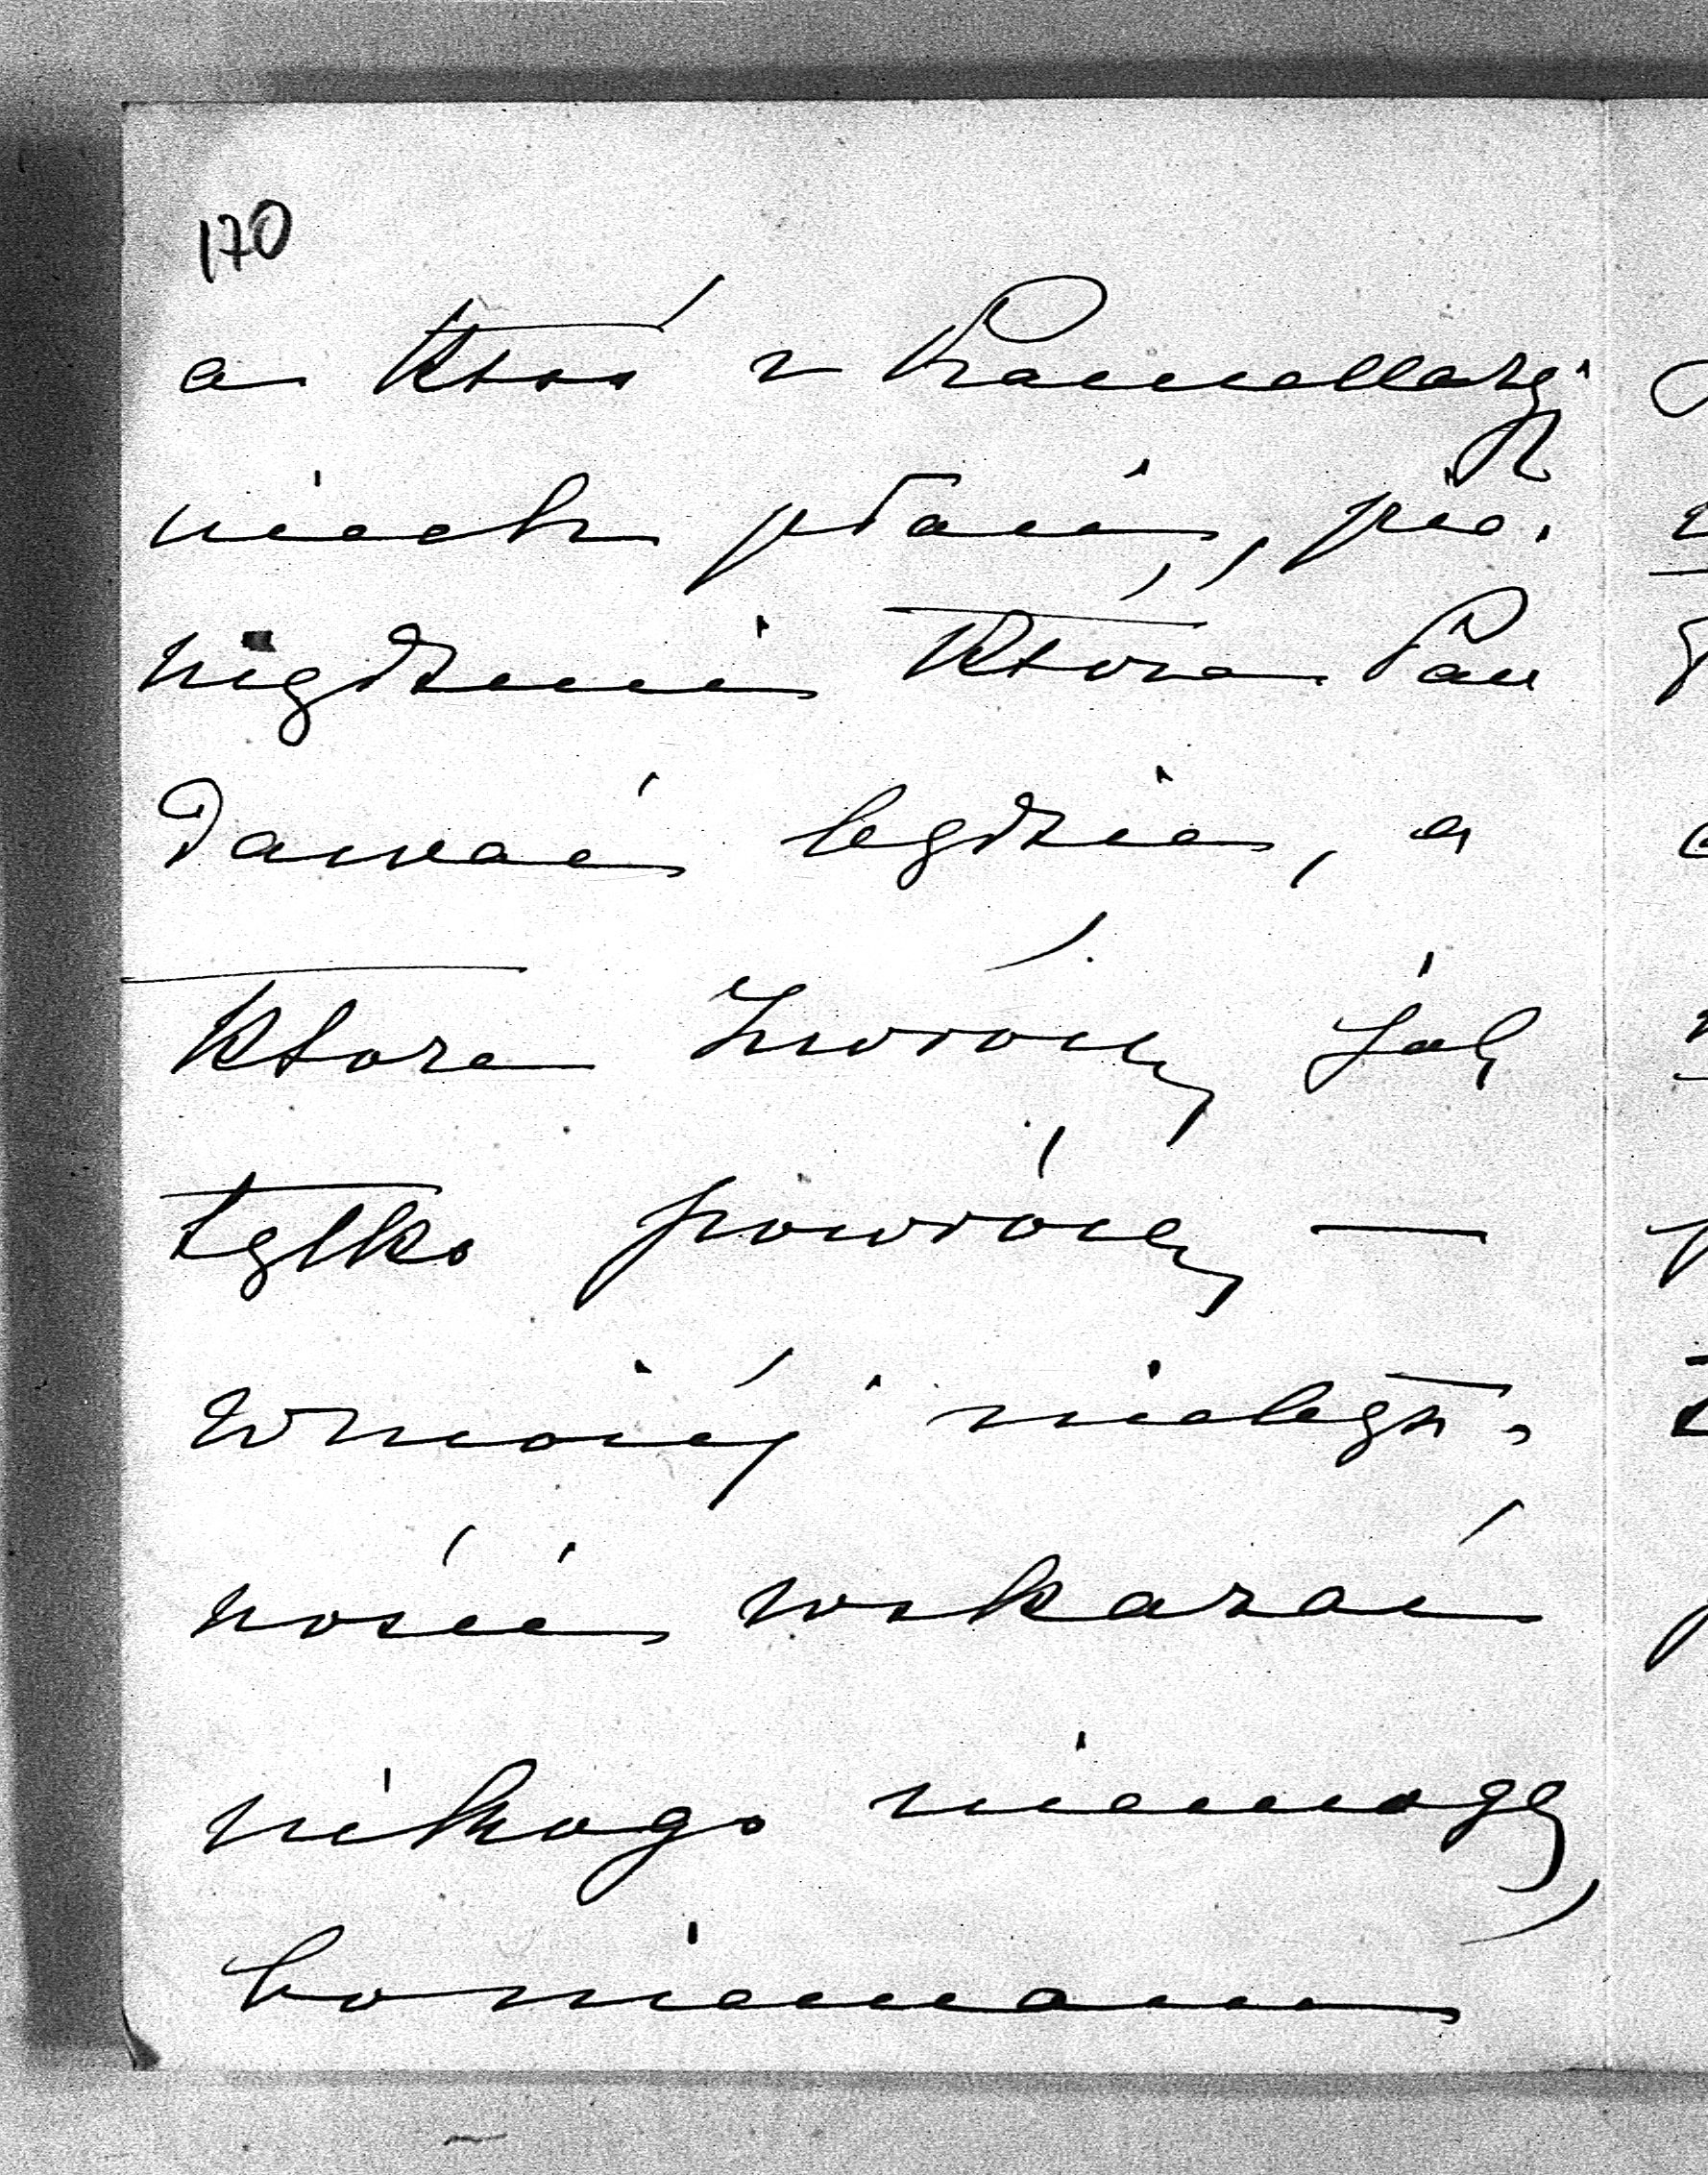 170
a ktoś z Kancellaryi
niech płaci, pie-
niędzmi które Pan
dawać będzie, a
które zwrócę jak
tylko powrócę —
Wmości nieby-
ność wskazać
nikogo niemogę,
bo niemam